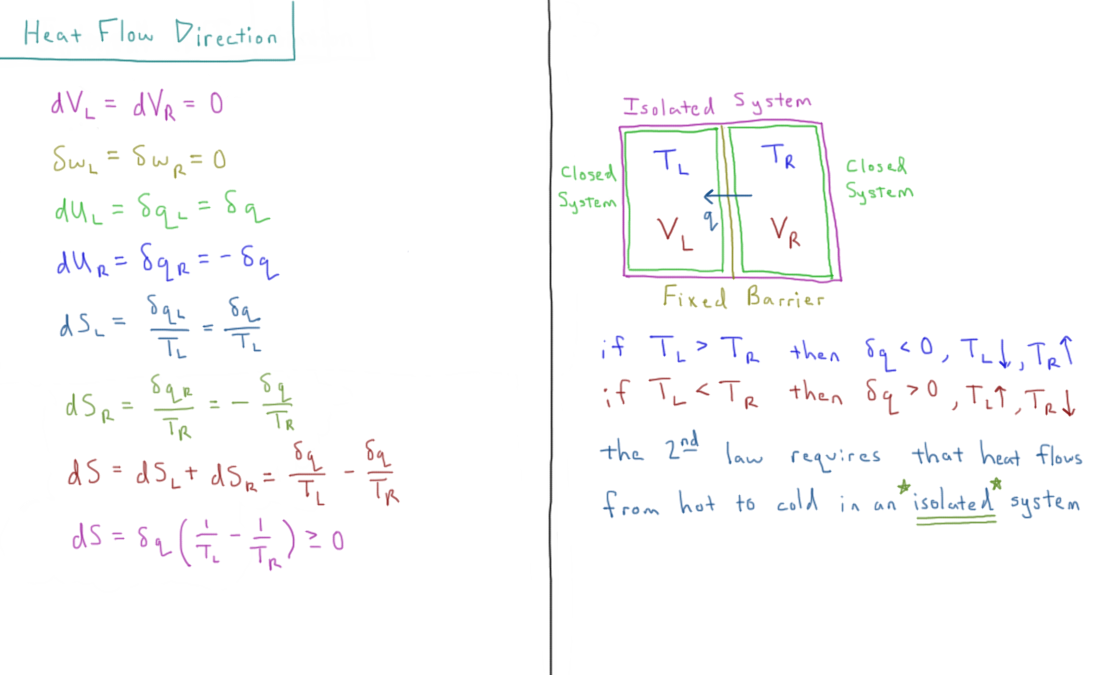 Heat Flow Direction
dV_L = dV_R = 0
δw_L = δw_R = 0
dU_L = δq_L = δq
dU_R = δq_R = -δq
dS_L = δq_L/T_L = δq/T_L
dS_R = δq_R/T_R = -δq/T_R
dS = dS_L + dS_R = δq/T_L - δq/T_R
dS = δq(1/T_L - 1/T_R) ≥ 0
Isolated System
Closed System
T_L
T_R
Closed System
q
V_L
V_R
Fixed Barrier
if T_L > T_R then δq < 0, T_L↓, T_R↑
if T_L < T_R then δq > 0, T_L↑, T_R↓
the 2nd law requires that heat flows
from hot to cold in an *isolated* system